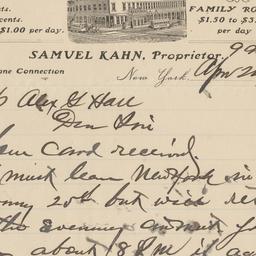 ts.
cents.
$1.00 per day.
FAMILY RO
$1.50 to $3.
per day
SAMUEL KAHN, Proprietor.
one Connection
New York, Apr 2
Alex G Hall
Dear Sir
Card received.
must leave New York in
20th but will ret
the Evening
about 8 P.M. if